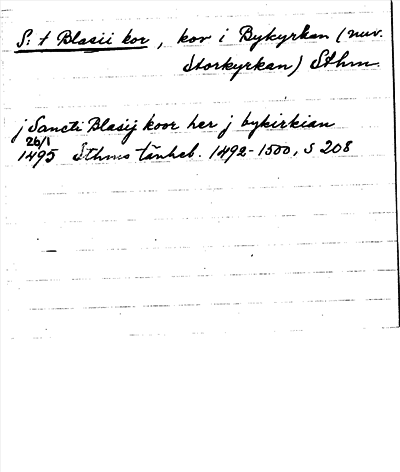 S:t Blasii kor, kor i Bykyrkan (nuv.
Storkyrkan) Sthm.
j Sancti Blasij koor her j bykirkian
26/1
1495 Sthms tänkeb. 1492-1500, s 208